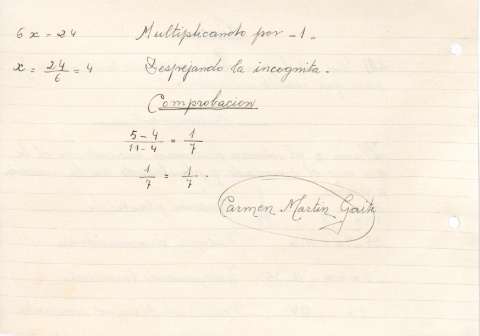 6x - 24 Multiplicando por -1-
x = 24/6 = 4 Despejando la incognita.
Comprobacion
5-4/11-4 = 1/7
1/7 = 1/7..
Carmen Martin Gaite